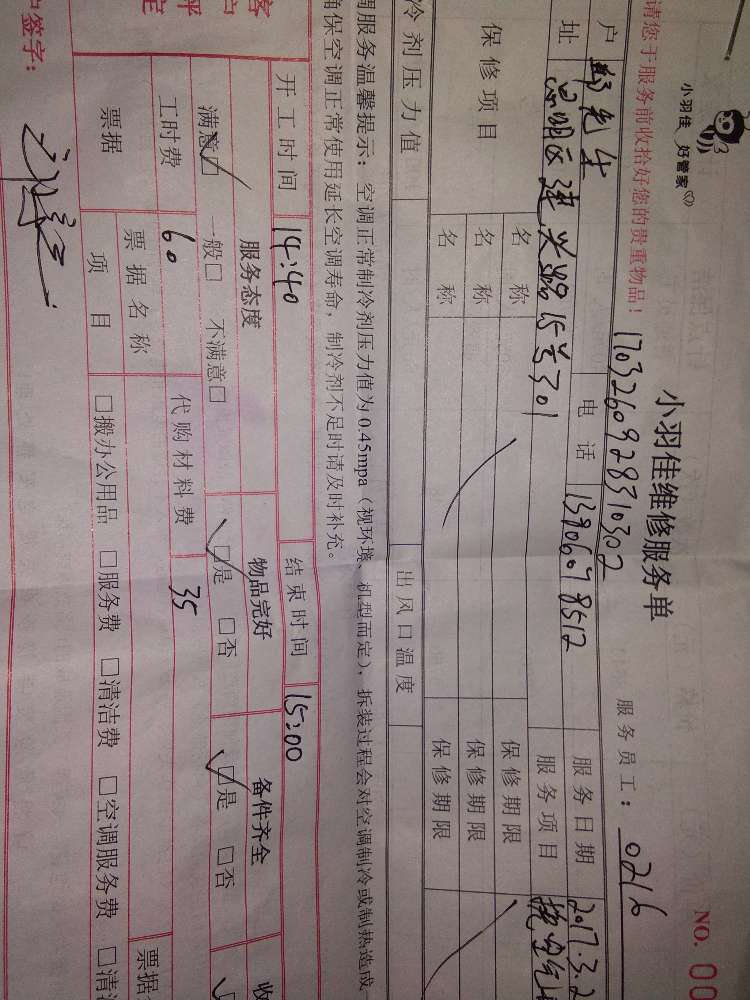 小羽佳 好管家
小羽佳维修服务单
NO. 00
请您于服务前收拾好您的贵重物品！
1703260928310302
服务员工： 0216
户
电话 13906078512
服务日期 2017.3.2
址 思明区建兴路15号301
服务项目
保修项目
名称
保修期限
名称
保修期限
名称
保修期限
冷剂压力值
出风口温度
调服务温馨提示： 空调正常制冷剂压力值为0.45mpa（视环境、机型而定），拆装过程会对空调制冷或制热造成
确保空调正常使用延长空调寿命，制冷剂不足时请及时补充。
开工时间 14:40 结束时间 15:00
客户评定
服务态度 物品完好 备件齐全 收
满意☑ 一般□ 不满意□ ☑是 □否 ☑是 □否
工时费 60 代购材料费 35
票据 票据名称 票据
项目 □搬办公用品 □服务费 □清洁费 □空调服务费 □清洁
户签字：